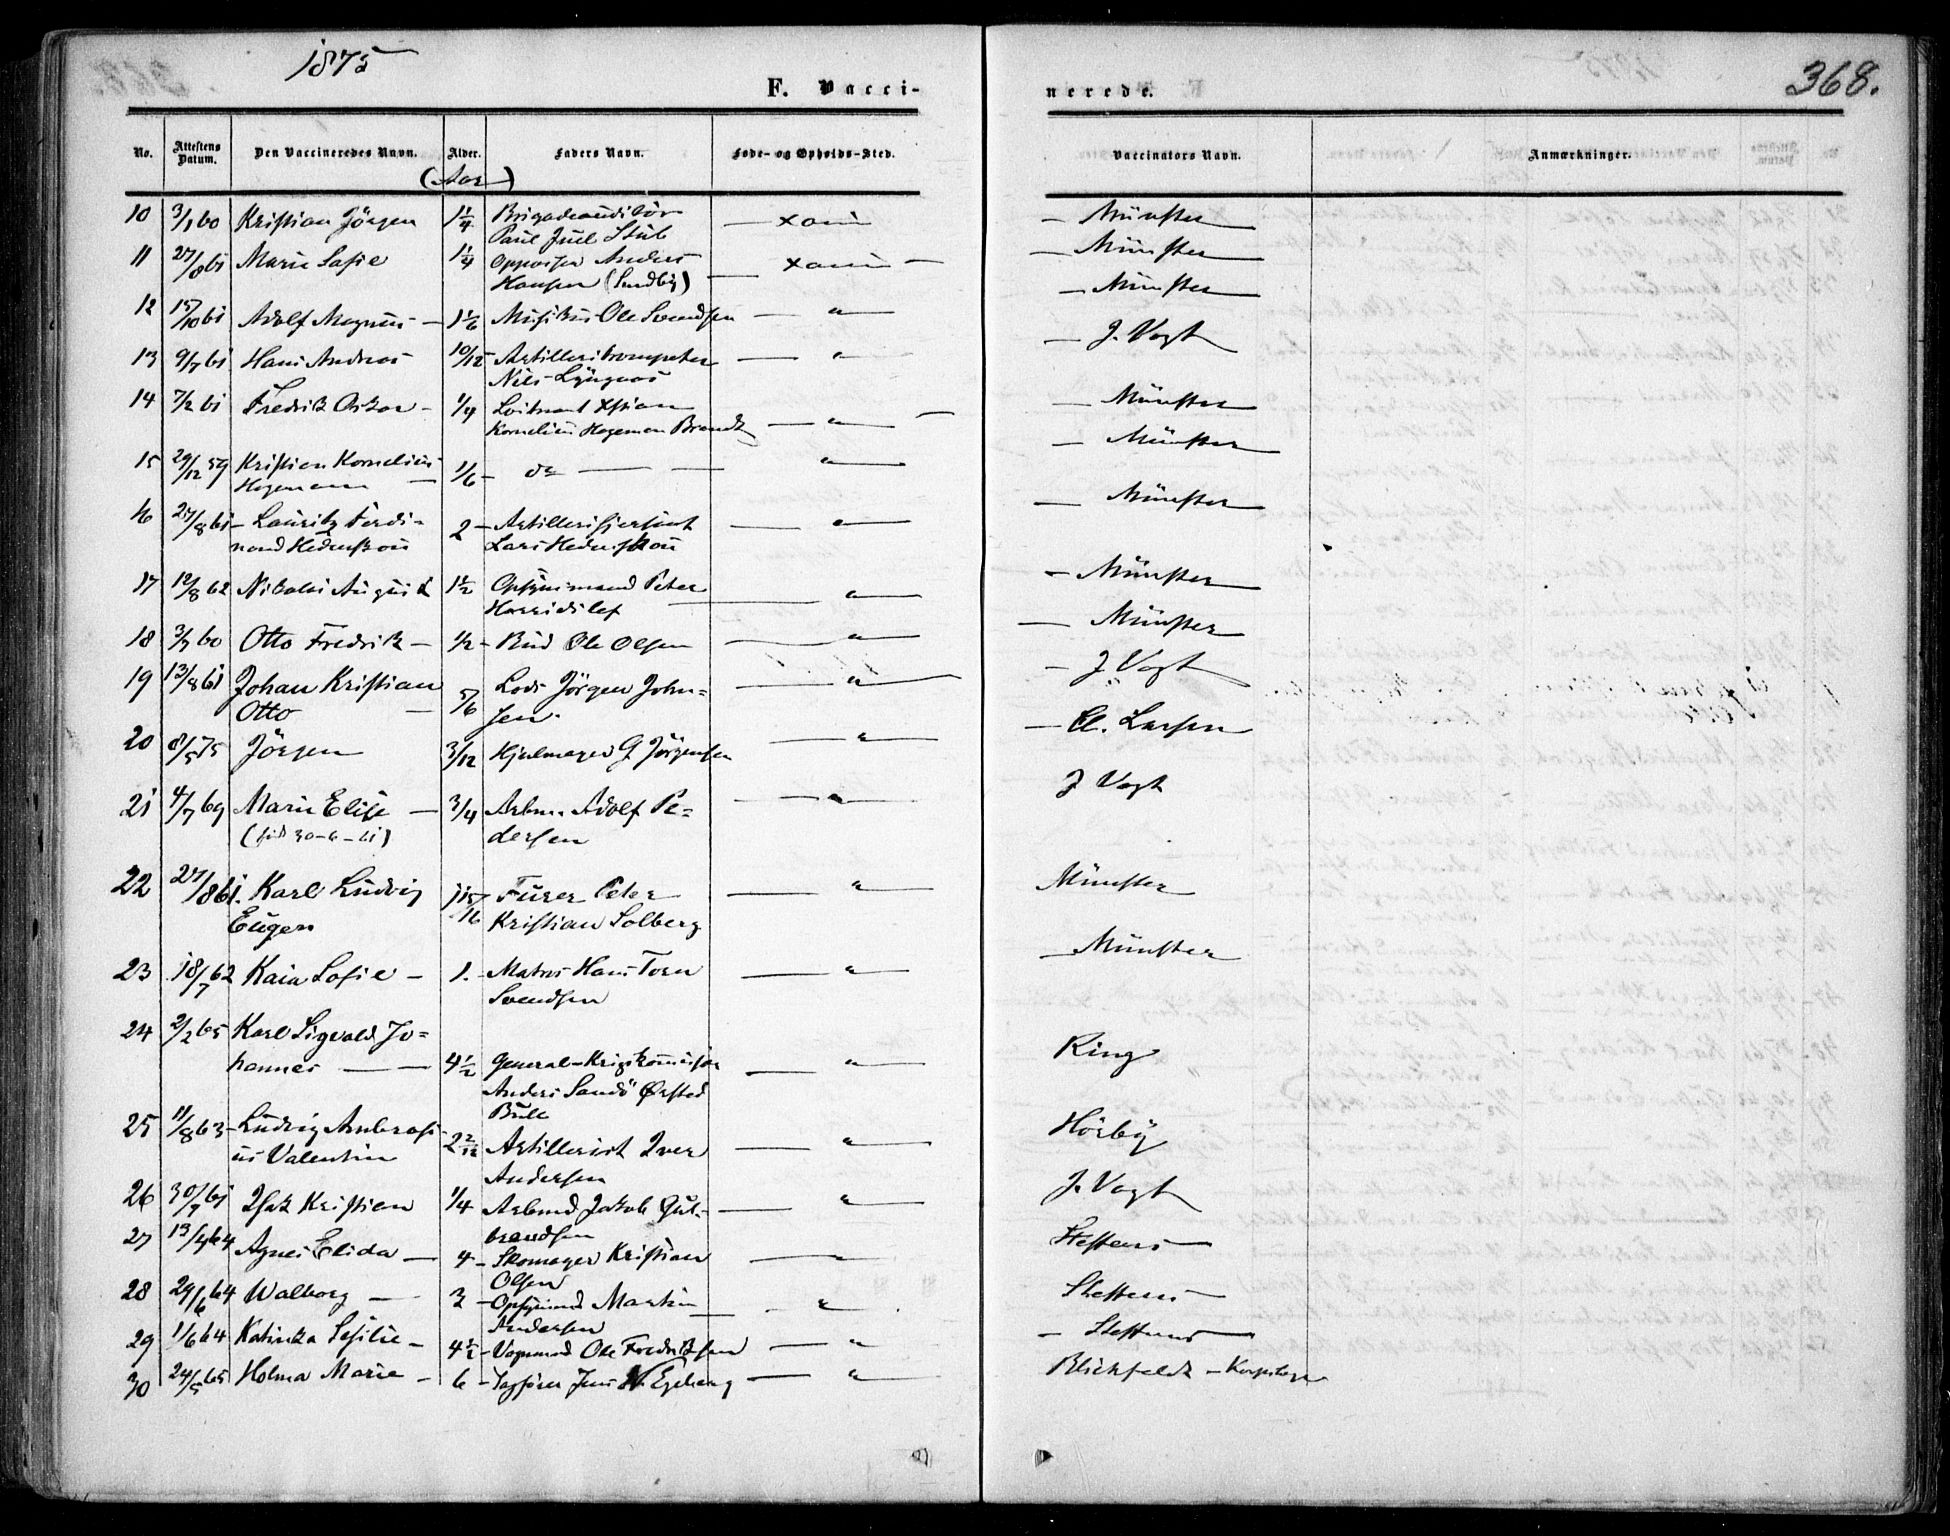 1875
368.
F. Vacci-
nerede.
No. Attestens Datum. Den Vaccineredes Navn. Alder. (Aar) Faders Navn. Føde- og Opholds-Sted. Vaccinators Navn. Anmærkninger.
10 3/1 60 Kristian Jörgen 1 1/4 Brigadeauditör — Xania — Münster
Paul Juel Stub
11 27/8 61 Marie Sofie 1 1/4 Anders — Xania — — Münster
Hansen (Sundby)
12 15/10 61 Adolf Magnus — 1 1/6 Musikus Ole Svendsen — " — — Münster
13 9/7 61 Hans Andreas 10/12 Artilleritrompeter — " — — J. Vogt
Nils
14 7/2 61 Fredrik Oskar — 1/4 Löitnant Xstian
Kornelius Hegeman Brandt — " — — Münster
15 29/12 59 Kristian Kornelius 1/6 — do — — — " — — Münster
Hegemann —
16 27/8 61 — Lauritz Ferdi- 2 — Artillerisjersant — " — — Münster
nand Hedenskou Lars Hedenskou
17 12/8 62 Nikolai August 1 1/2 Opsynsmand Peter — " — — Münster
18 3/7 60 Otto Fredrik — 1/2 — Bud Ole Olsen — " — — Münster
19 13/8 61 Johan Kristian 5/6 Lods Jörgen John- — " — — J. Vogt
Otto — sen.
20 8/5 75 Jörgen 3/12 Hjulmager G Jörgensen — " — — Cl. Larsen
21 4/7 69 Marie Elise — 3/4 Arbm. Adolf Pe- — " — J Vogt
(föd 30-6-61) dersen
22 27/8 61. Karl Ludvig 1 Furer Peter — " — Münster
Eugen Kristian Solberg
23 18/7 62 Kaia Sofie — 1. — Matros Hans Torn — " — — Münster
Svendsen
24 2/2 65 Karl Sigvald Jo-
hannes — — 4 1/2 General-Krigskommissær — " — Ring
Anders Sandö Ørsted
Bull
25 11/8 63 — Ludvig Ambrosi- 2 2/12 Artillerist Iver — " — Hörbÿ
us Valentin
Andersen
26 30/7 61 Isak Kristian 1/4 Arbmd Jakob Gul- — " — J. Vogt
brandsen
27 13/4 64 Agnes Elida — 4 — Skomager Kristian — " — Steffens —
Olsen
28 29/6 64 Walborg — 3 — Opsynsmd Martin — " . Steffens —
Andersen
29 1/6 64 Katinka Sesilie — 4 1/2 — Vognmd Ole Fredriksen — " — — Steffens
30 24/5 65 Holma Marie — 6 — Sagförer Jens N. Egeberg — " — Blichfeldt — Korpslæge